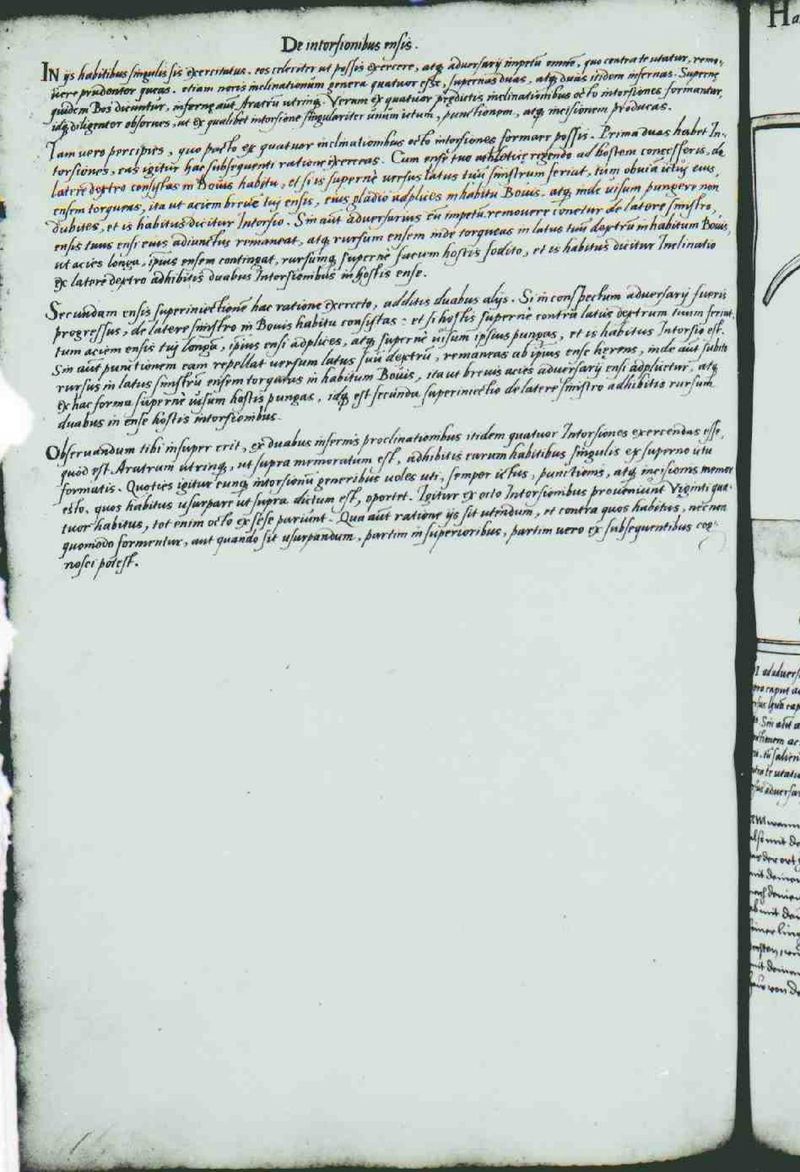 De intorsionibus ensis.
IN ijs habitibus singulis sis exercitatus. eos celeriter ut possis exercere, atq̃ adversarij impetũ omnẽ, quo contra te utatur, remo-
vere prudenter queas. etiam noris inclinationum genera quatuor esse, supernas duas, atq̃ duas itidem infernas. Supernę
quidem Bos dicuntur, infernę aut̃ Aratrũ utrinq̃. Verum ex quatuor predictis inclinationibus octo intorsiones formantur,
idq̃ diligenter observes, ut ex qualibet intorsione singulariter unum ictum, punctionem, atq̃ incisionem producas.
Iam vero percipies, quo pacto ex quatuor inclinationibus octo intorsiones formare possis. Prima duas habet In-
torsiones, eas igitur hac subsequenti ratione exerceas. Cum ense tuo athleticę rigendo ad hostem concesseris, de
latere dextro consistas in Bovis habitu, et si is supernè versus latus tuũ sinistrum feriat, tum obvia ictuj eius,
ensem torquens, ita ut aciem breve tuj ensis, eius gladio adplices in habitu Bovis. atq̃ inde visum pungere non
dubites, et is habitus dicitur Intorsio. Sin aut adversarius eũ impetũ removere conetur de latere sinistro,
ensis tuus ensi eius adiunctus remaneat, atq̃ rursum ensem inde torqueas in latus tuũ dextrũ in habitum Bovis,
ut acies longa, ipius ensem contingat, rursumq̃ supernè facum hostis fodito, et is habitus dicitur Inclinatio
ex latere dextro adhibitis duabus Intorsionibus in hostis ense.
Secundam ensis superiniectionẽ hac ratione exerceto, additis duabus alijs. Si in conspectum adversarij fueris
progressus, de latere sinistro in Bovis habitu consistas: et si hostis supernè contra latus dextrum tuum feriat,
tum aciem ensis tuj longã, ipius ensi adplices, atq̃ supernè visum ipsius pungas, et is habitus Intorsio est.
Sin aut̃ punctionem eam repellat versum latus suũ dextrũ, remaneas ab ipius ense herens, inde aut subito
rursus in latus sinistrũ ensem torqueas in habitum Bovis, ita ut brevis acies adversarij ensi adplicetur, atq̃
ex hac forma supernè visum hostis pungas, idq̃ est secunda superiniectio de latere sinistro adhibitis rursum
duabus in ense hostis intorsionibus.
Observandum tibi insuper erit, ex duabus infernis proclinationibus itidem quatuor Intorsiones exercendas esse,
quod est Aratrum utrinq̃, ut supra memoratum est, adhibitis earum habitibus singulis ex superno ictu
formatis. Quoties igitur cunq̃ intorsionũ generibus voles uti, semper ictus, punctionis, atq̃ incisionis memor
esto, quos habitus usurpare ut supra dictum est, oportet. Igitur ex octo Intorsionibus proveniunt Viginti qua-
tuor habitus, tot enim octo ex sese pariunt. Qua aut̃ ratione ijs sit utendum, et contra quos habitus, necnon
quomodo formentur, aut quando sit usurpandum, partim in superioribus, partim vero ex subsequentibus cog-
nosci potest.